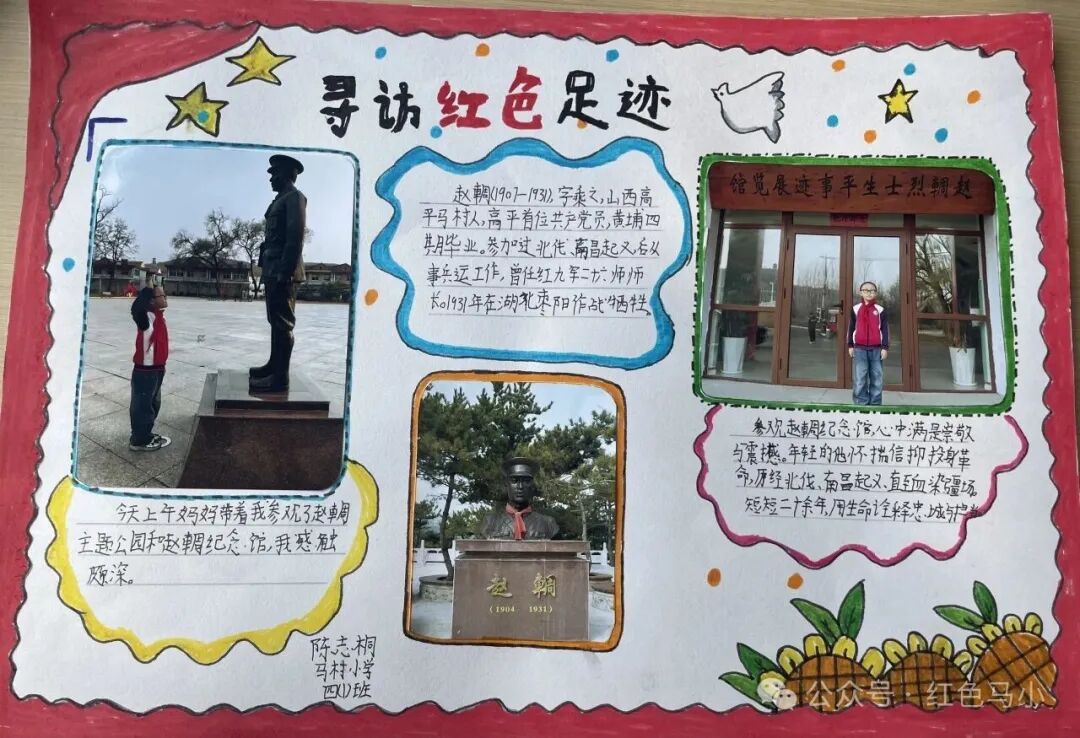 寻访红色足迹
赵輖(1907-1931),字乘之,山西高
平马村人,高平首位共产党员,黄埔四
期毕业。参加过北伐、南昌起义,后从
事兵运工作,曾任红九军二十六师师
长。1931年在湖北枣阳作战牺牲。
赵輖烈士生平事迹展览馆
今天上午妈妈带着我参观了赵輖
主题公园和赵輖纪念馆,我感触
颇深。
赵輖
(1904 1931)
参观赵輖纪念馆,心中满是崇敬
与震撼。年轻的他怀揣信仰投身革
命,历经北伐、南昌起义,直至血染疆场。
短短二十余年,用生命诠释忠诚与
陈志桐
马村小学
四(1)班
公众号·红色马小